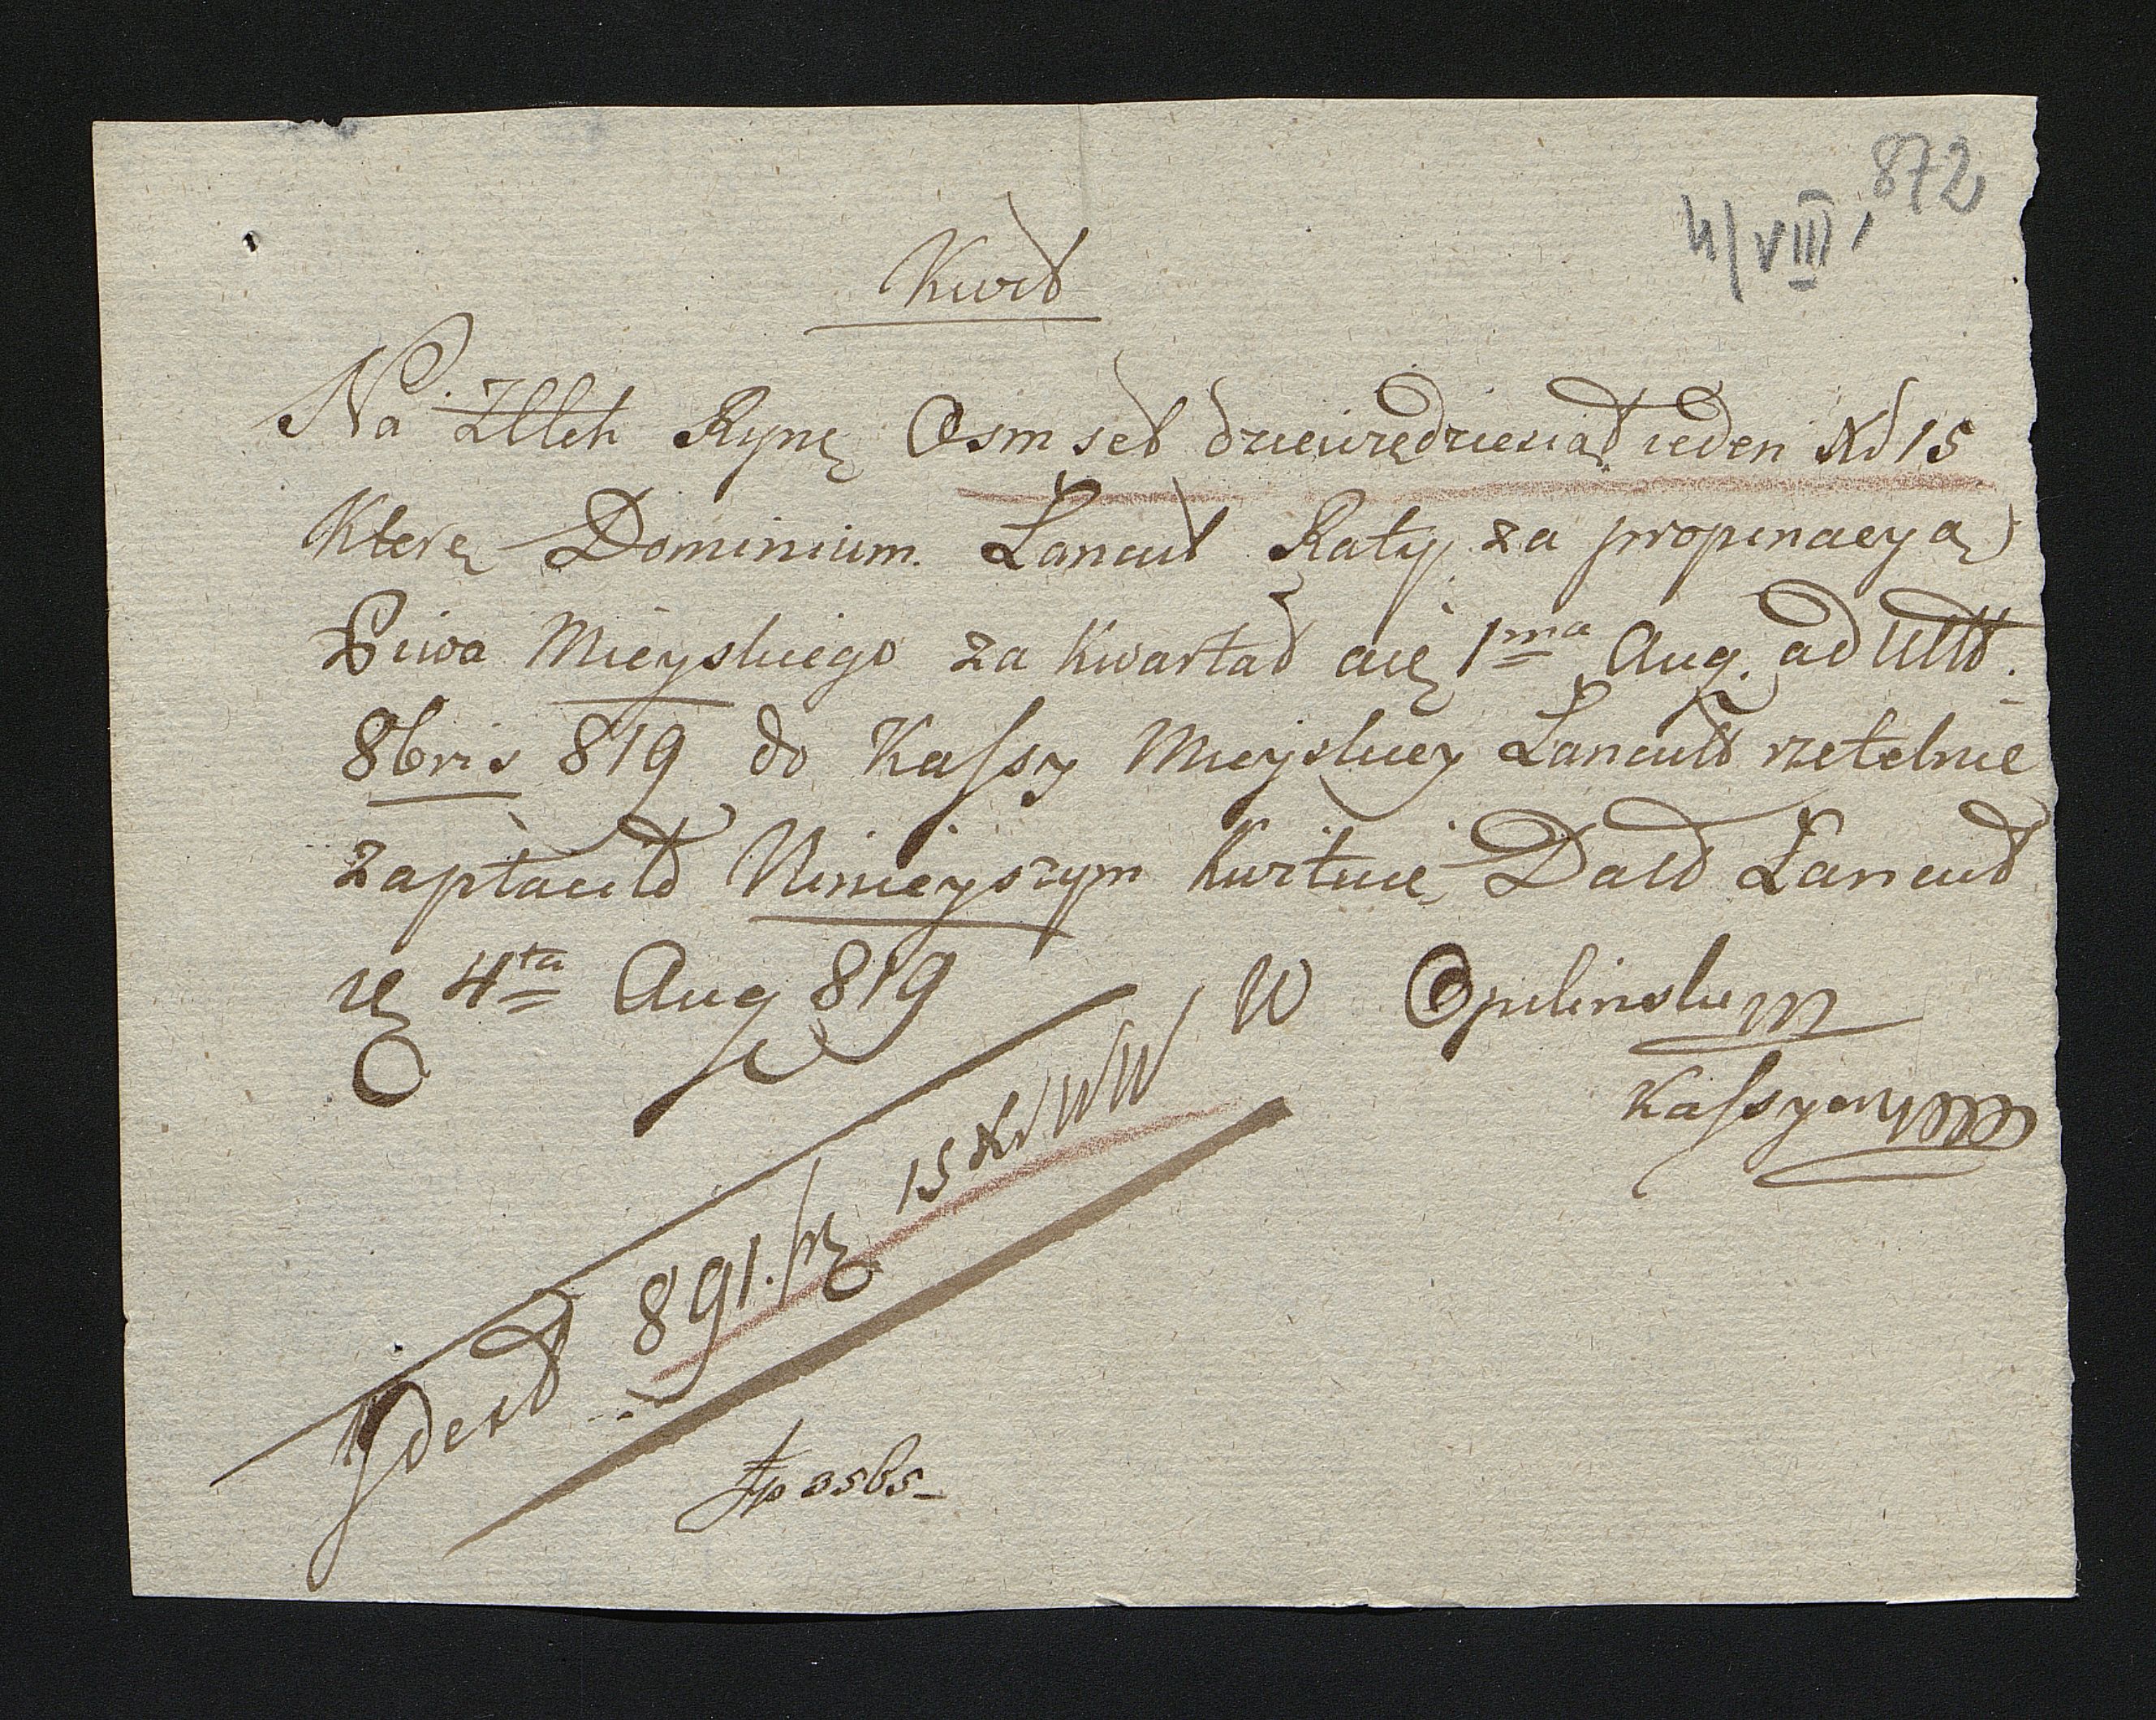 872
4/VIII
Kwit
Na Zllch Rynę Osm set dziewiędziesiąt ieden Xr 15
Którę Dominium Łancut Raty za propinacyą
Piwa Mieyskiego za Kwartał aię 1ma Aug. ad Ult.
8bris 819 do Kassy Mieyskiey Łancutt rzetelnie
zapłacił Ninieyszym Kwituię Datt Łancut
ię 4ta Aug 819 W Opulinski
Kassyer
Idest 891. fr 15 Xr WW